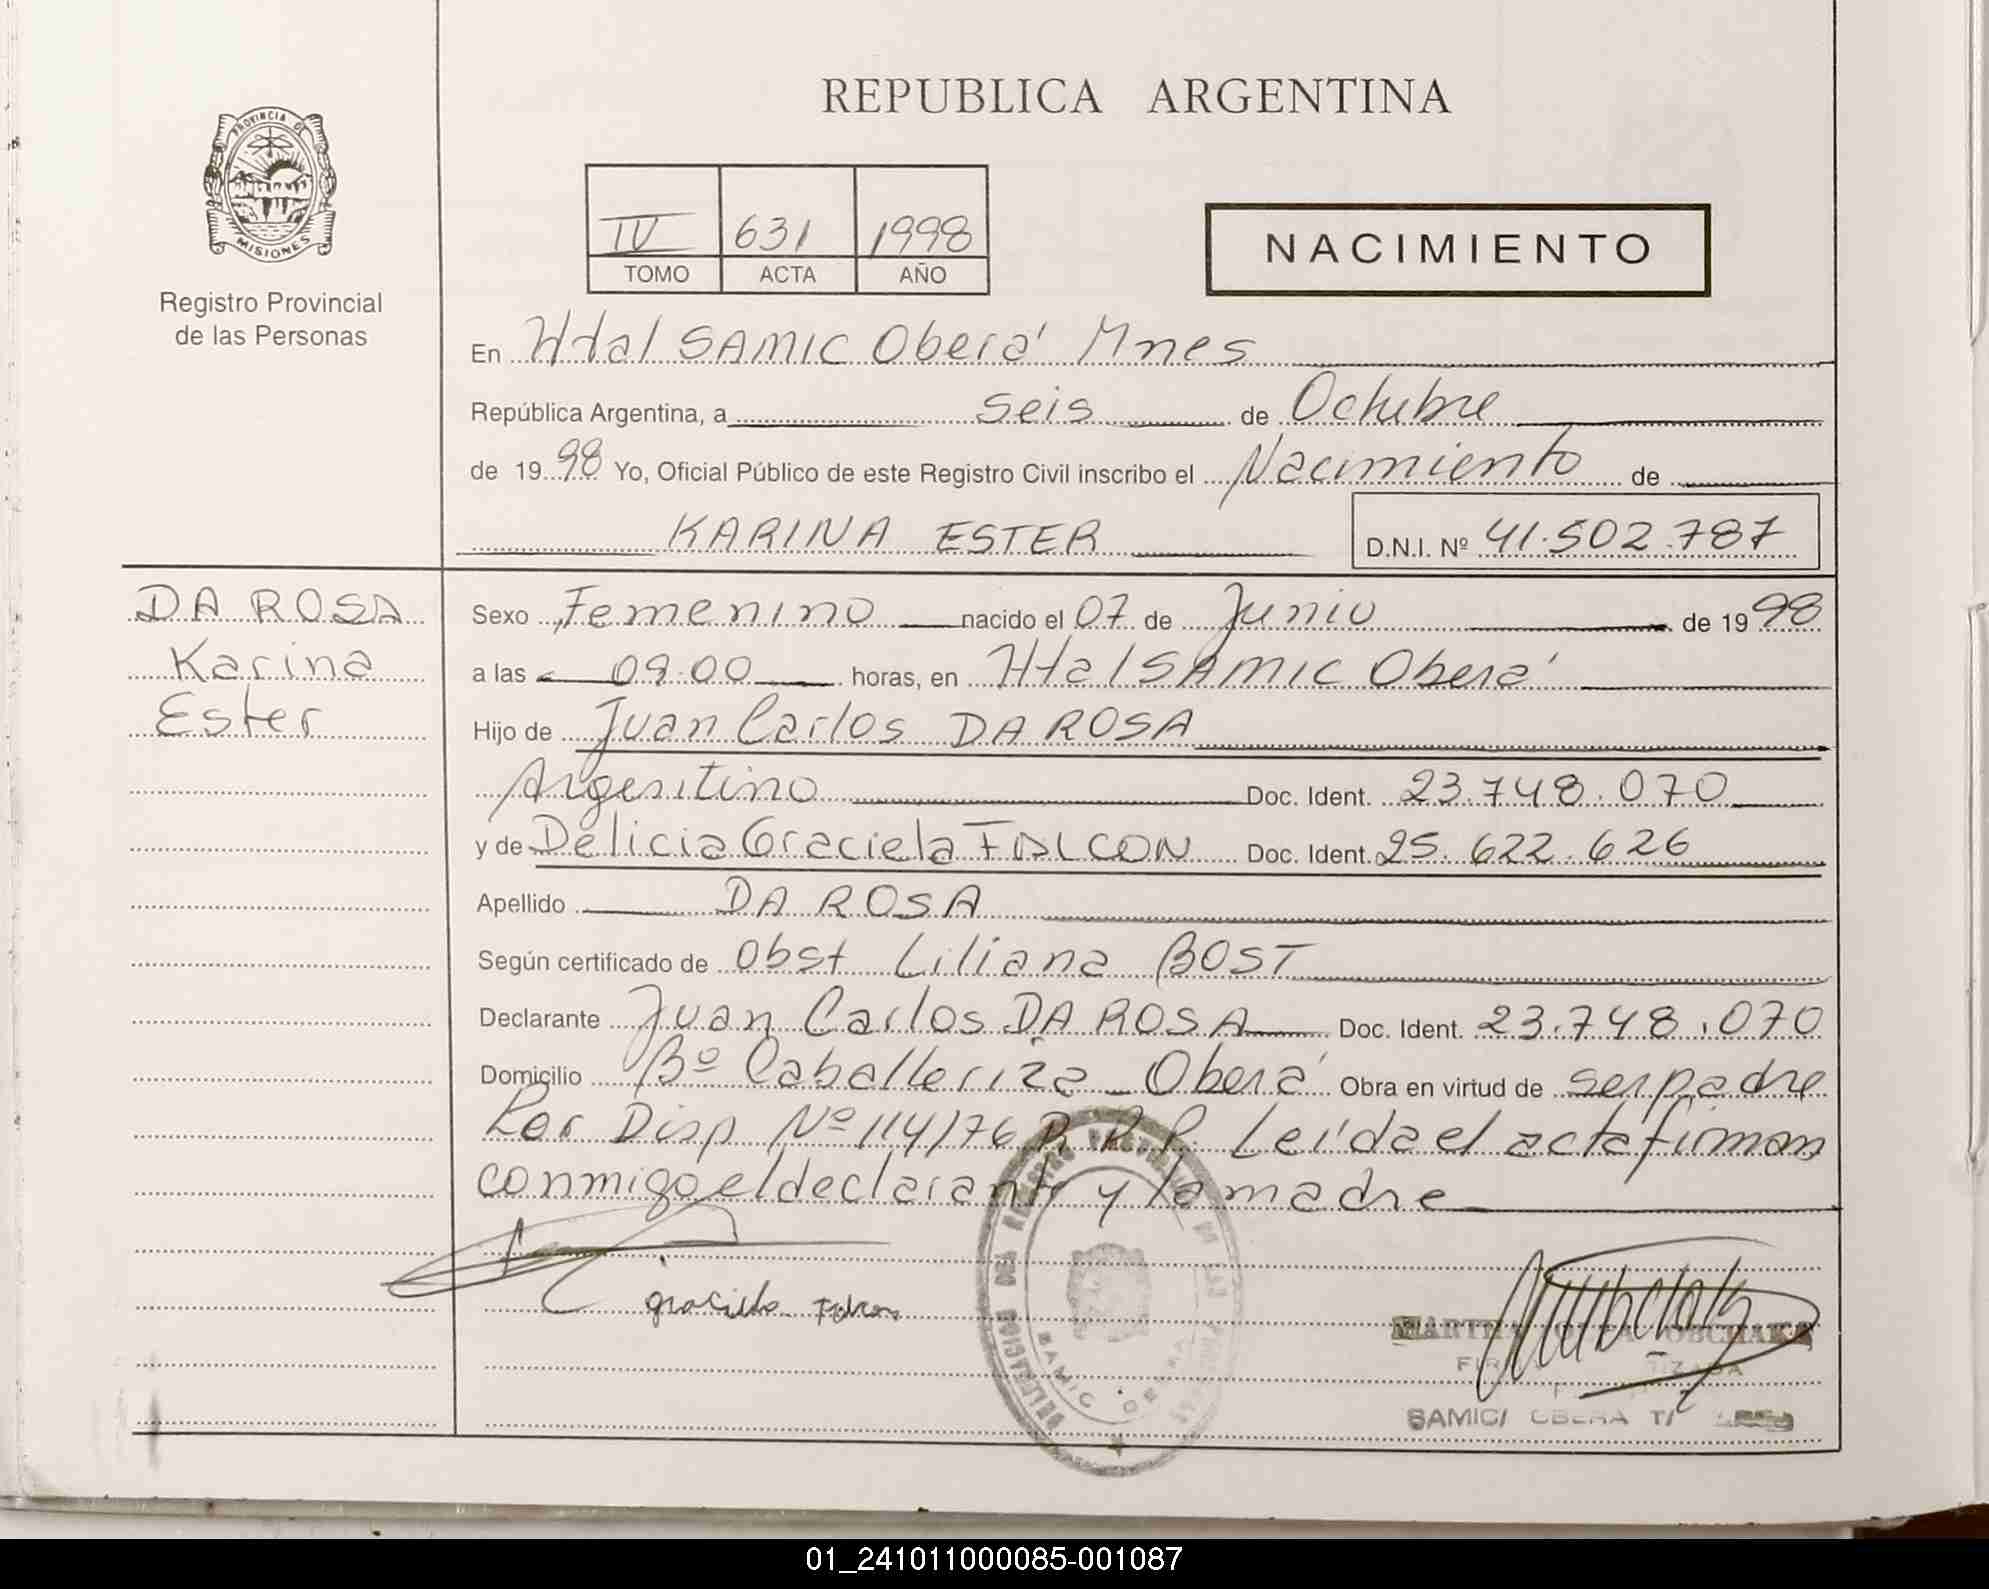 REPUBLICA ARGENTINA
PROVINCIA DE
MISIONES
Registro Provincial
de las Personas
IV 631 1998
TOMO ACTA AÑO
NACIMIENTO
En Htal SAMIC Oberá Mnes
República Argentina, a seis de Octubre
de 1998 Yo, Oficial Público de este Registro Civil inscribo el Nacimiento de
KARINA ESTER D.N.I. Nº 41.502.787
DA ROSA
Karina
Ester
Sexo Femenino nacido el 07 de Junio de 1998
a las 09.00 horas, en Htal SAMIC Oberá
Hijo de Juan Carlos DA ROSA
Argentino Doc. Ident. 23.748.070
y de Delicia Graciela FALCON Doc. Ident. 25.622.626
Apellido DA ROSA
Según certificado de Obst Liliana BOST
Declarante Juan Carlos DA ROSA Doc. Ident. 23.748.070
Domicilio Bº Caballeriza Oberá Obra en virtud de ser padre
Por Disp Nº 114/76 R.P.P. Leída el acta firman
conmigo el declarante y la madre
SAMIC OBERA
01_241011000085-001087